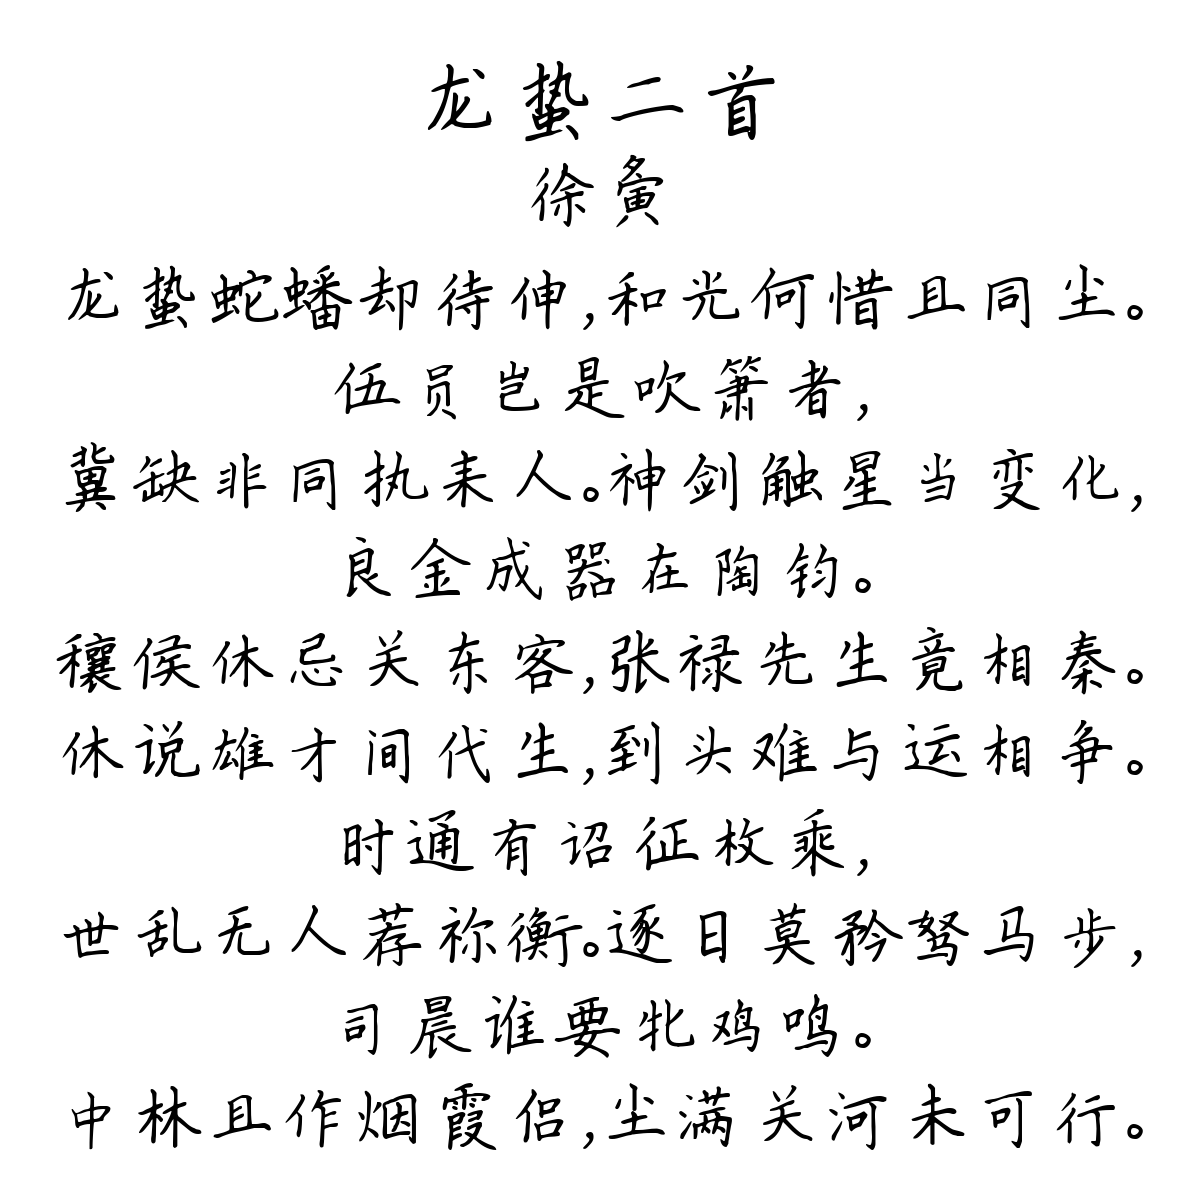 龙蛰二首
徐夤
龙蛰蛇蟠却待伸,和光何惜且同尘。
伍员岂是吹箫者,
冀缺非同执耒人。神剑触星当变化,
良金成器在陶钧。
穰侯休忌关东客,张禄先生竟相秦。
休说雄才间代生,到头难与运相争。
时通有诏征枚乘,
世乱无人荐祢衡。逐日莫矜驽马步,
司晨谁要牝鸡鸣。
中林且作烟霞侣,尘满关河未可行。